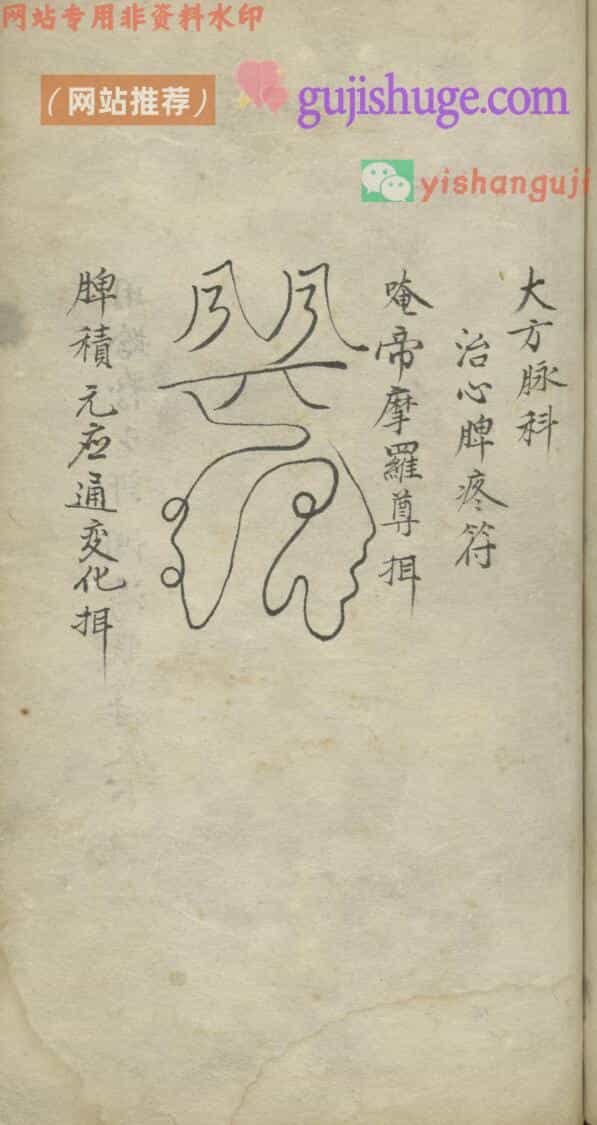 网站专用非资料水印
（网站推荐）
gujishuge.com
yishanguji
大方脉科
治心脾疼符
唵帝摩羅尊挕
脾積元应通变化挕